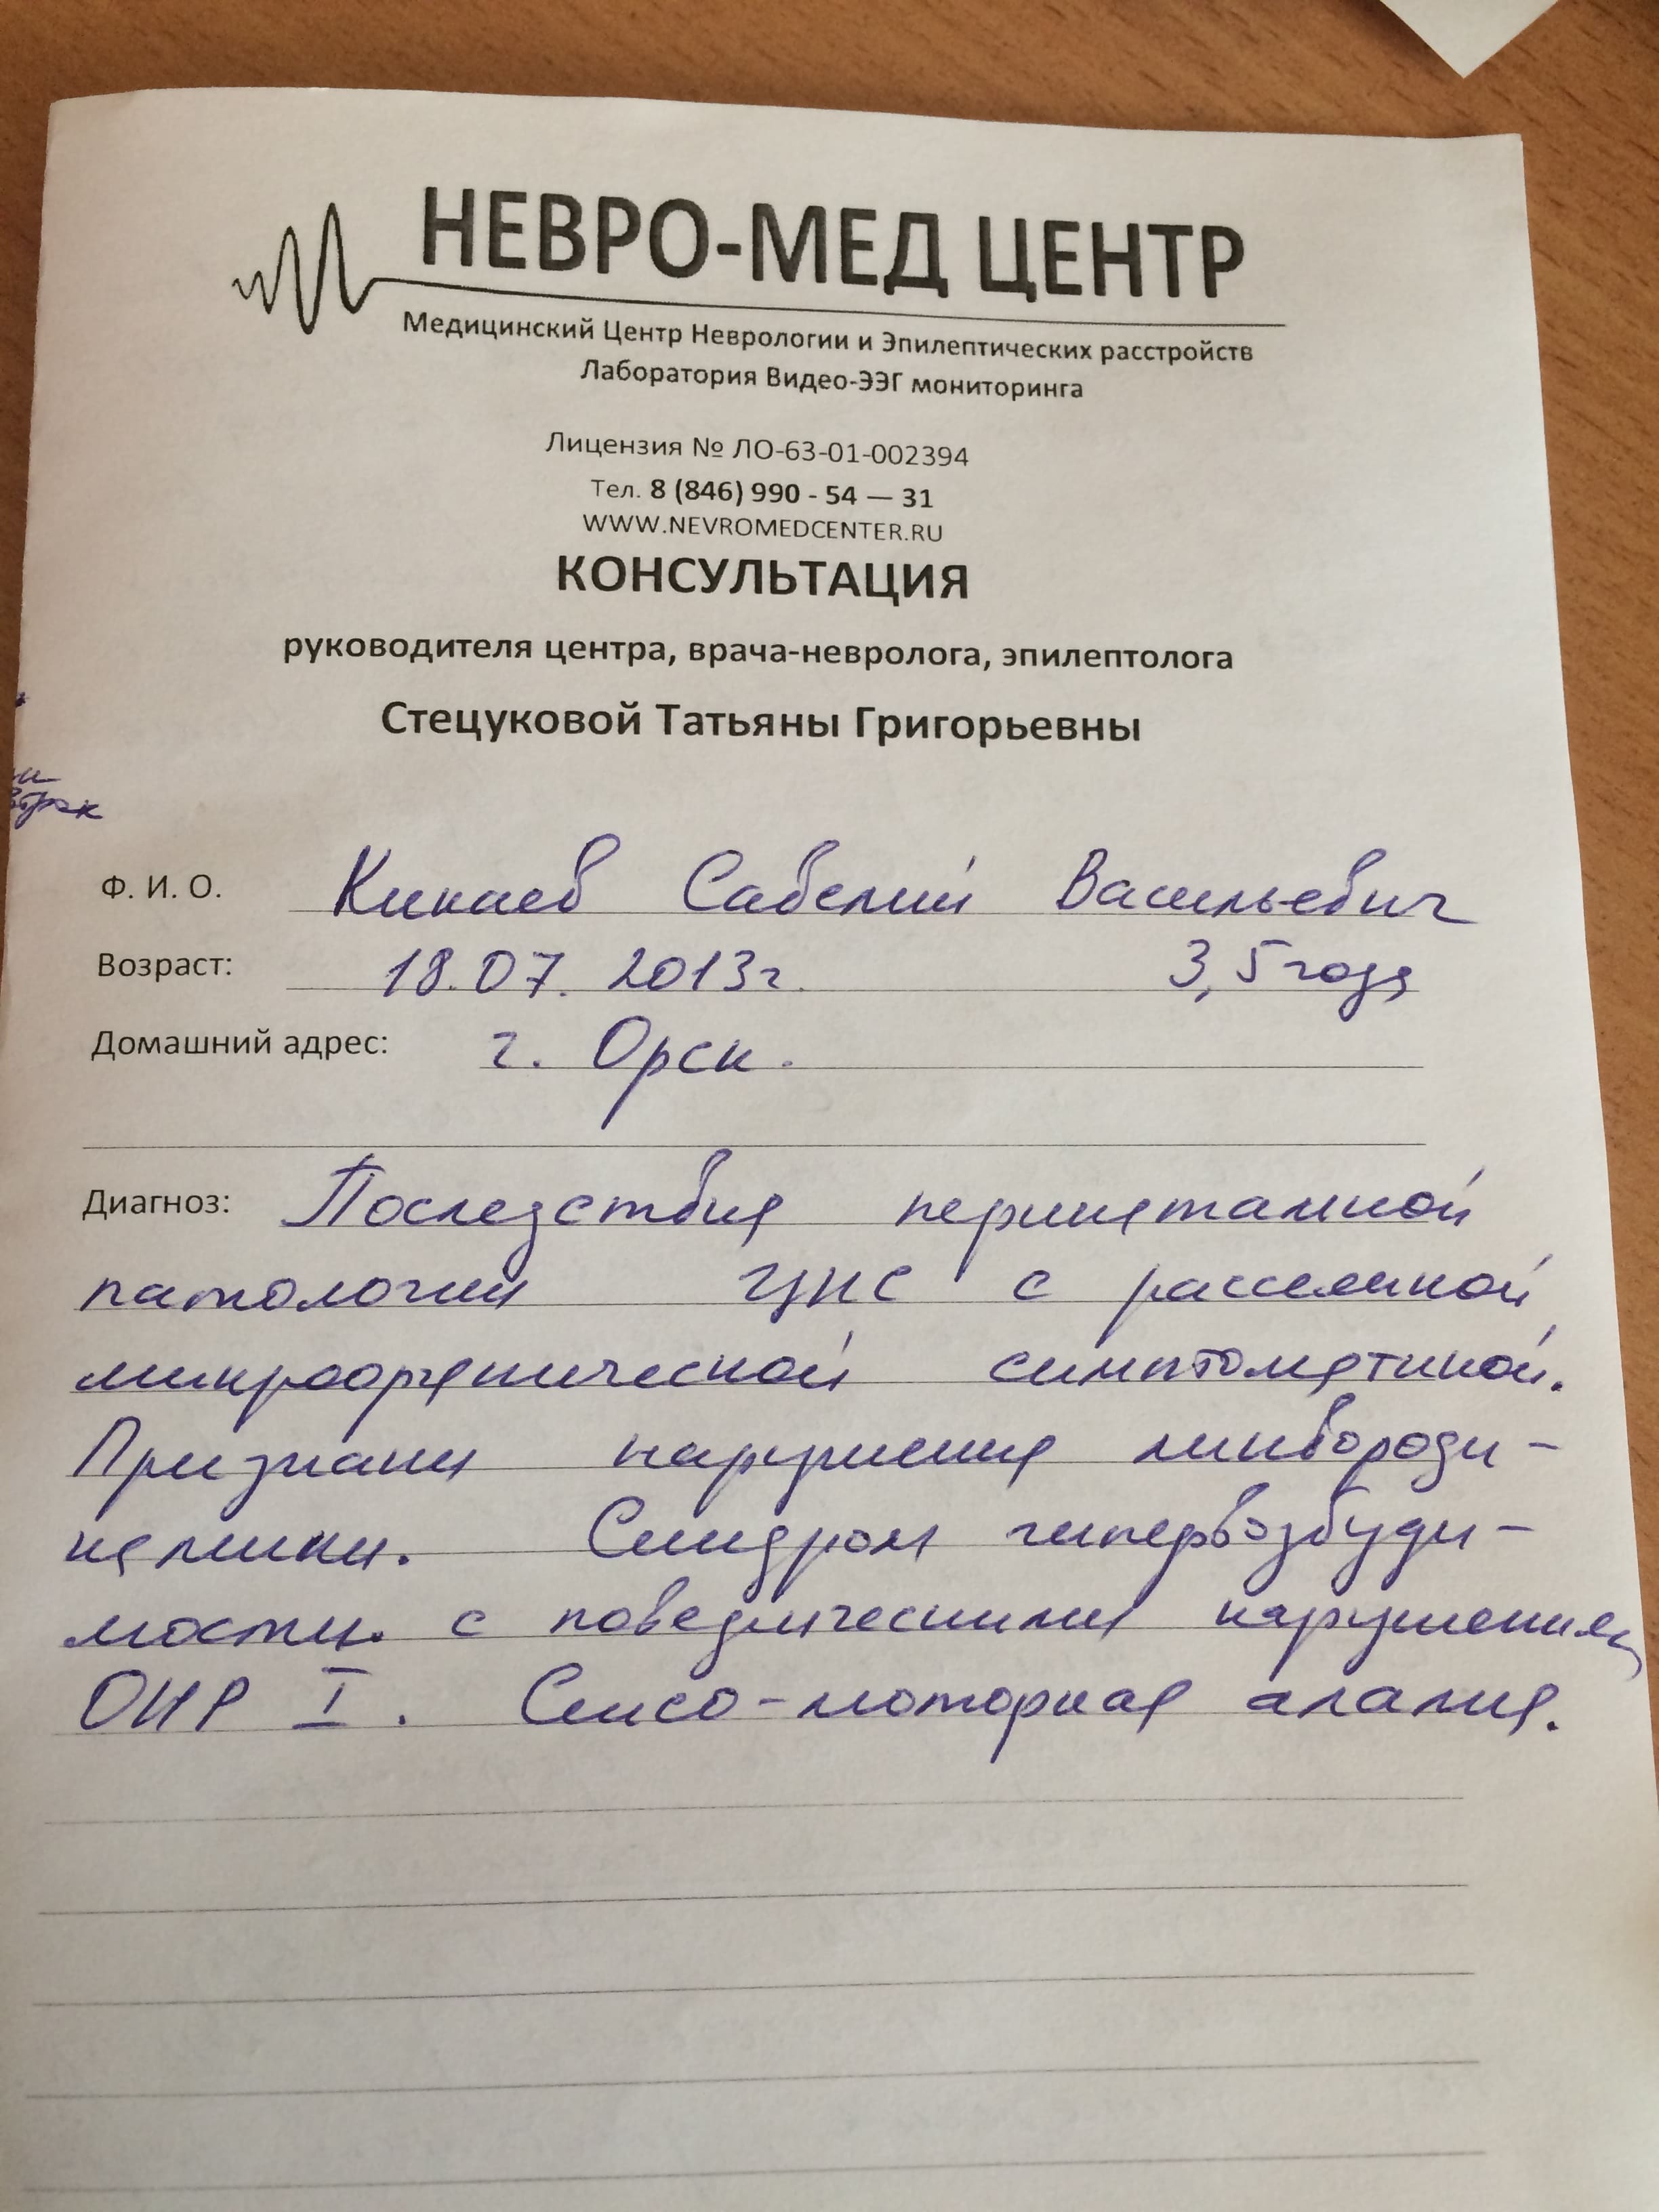 НЕВРО-МЕД ЦЕНТР
Медицинский Центр Неврологии и Эпилептических расстройств
Лаборатория Видео-ЭЭГ мониторинга
Лицензия № ЛО-63-01-002394
Тел. 8 (846) 990 - 54 — 31
WWW.NEVROMEDCENTER.RU
КОНСУЛЬТАЦИЯ
руководителя центра, врача-невролога, эпилептолога
Стецуковой Татьяны Григорьевны
Ф. И. О. Савелий Васильевич
Возраст: 18.07.2013г. 3,5 года
Домашний адрес: г. Орск.
Диагноз: Последствия перинатальной
патологии ЦНС с рассеянной
микроорганической симптоматикой.
Признаки нарушения ликвороди-
намики. Синдром гипервозбуди-
мости с поведенческими нарушениями
ОНР I. Сенсо-моторная алалия.